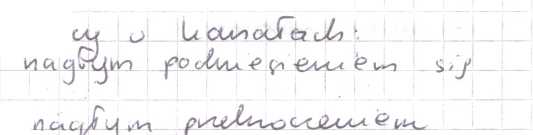 cy u kanałach:
nagłym podniesieniem się
nagłym przekroczeniem